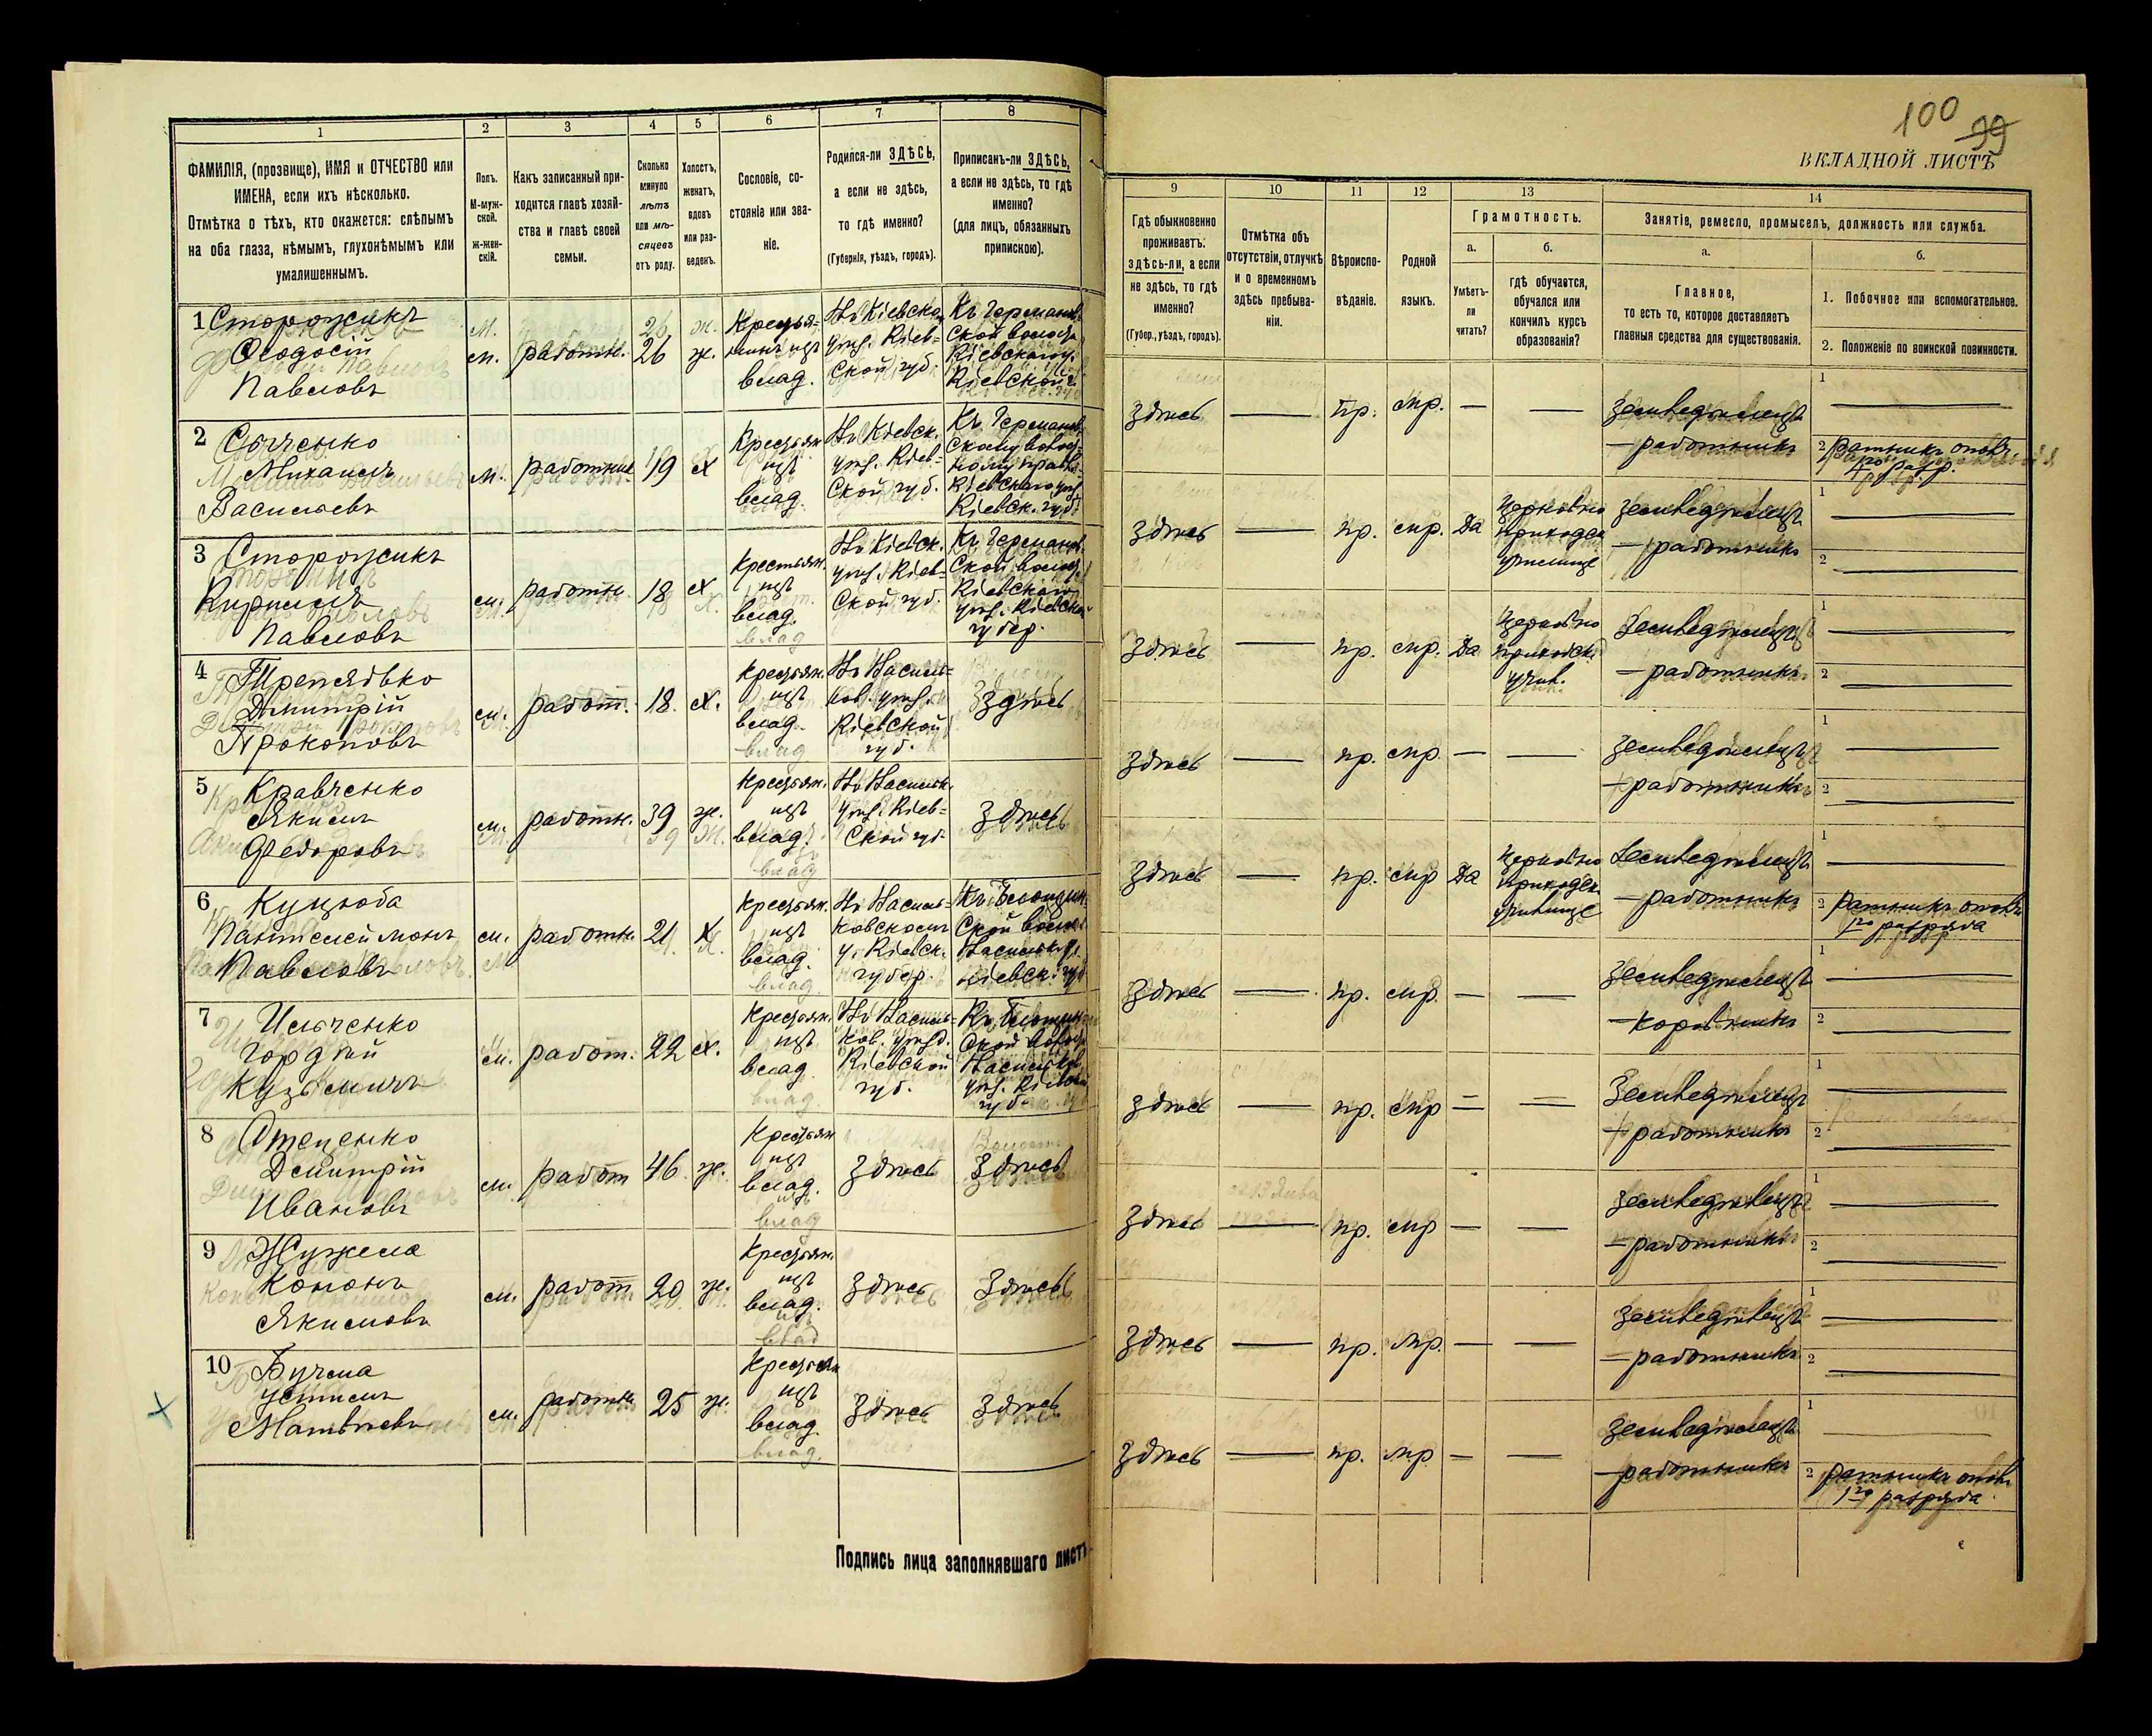 100
99
ВКЛАДНОЙ ЛИСТЪ
1
2
3
4
5
6
7
8
ФАМИЛІЯ, (прозвище), ИМЯ и ОТЧЕСТВО или
ИМЕНА, если ихъ нѣсколько.
Отмѣтка о тѣхъ, кто окажется: слѣпымъ
на оба глаза, нѣмымъ, глухонѣмымъ или
умалишеннымъ.
Полъ.
М-муж-
ской.
ж-жен-
скій.
Какъ записанный при-
ходится главѣ хозяй-
ства и главѣ своей
семьи.
Сколько
минуло
лѣтъ
или мѣ-
сяцевъ
отъ роду.
Холостъ,
женатъ,
вдовъ
или раз-
веденъ.
Сословіе, со-
стояніе или зва-
ніе.
Родился-ли ЗДѢСЬ,
а если не здѣсь,
то гдѣ именно?
(Губернія, уѣздъ, городъ).
Приписанъ-ли ЗДѢСЬ,
а если не здѣсь, то гдѣ
именно?
(для лицъ, обязанныхъ
припискою).
9
10
11
12
13
14
Гдѣ обыкновенно
проживаетъ:
здѣсь-ли, а если
не здѣсь, то гдѣ
именно?
(Губер., уѣздъ, городъ).
Отмѣтка объ
отсутствіи, отлучкѣ
и о временномъ
здѣсь пребыва-
ніи.
Вѣроиспо-
вѣданіе.
Родной
языкъ.
Грамотность.
а.
б.
Умѣетъ-
ли
читать?
гдѣ обучается,
обучался или
кончилъ курсъ
образованія?
Занятіе, ремесло, промыселъ, должность или служба.
а.
б.
Главное,
то есть то, которое доставляетъ
главныя средства для существованія.
1. Побочное или вспомогательное.
2. Положеніе по воинской повинности.
1 Сторожикъ
Ѳеодосій
Павловъ
м.
работн.
26
ж.
Крестья-
нинъ изъ
влад.
Въ Кіевско
уѣз. Кіев-
ской губ.
Къ Германов
ской волос
Кіевскаго у.
Кіевской г.
здѣсь — пр. мр. — —
земледѣлецъ
— работникъ
1
2 ратникъ опол.
1го разр.
2
Михаилъ
Васильевъ
м.
работник
19
х
Крестьян
изъ
влад.
Въ Кіевск.
уѣз. Кіев-
ской губ.
Кіевскаго уѣз
Кіевск. губ
здѣсь — пр. мр. да
церковно
приходск
училище
земледѣлецъ
— работникъ
1
2
3 Сторожикъ
Кириллъ
Павловъ
м.
работн.
18
х
Крестьян.
изъ
влад.
Въ Кіевск.
уѣз. Кіев-
ской губ.
Къ Германов.
ской волос.
Кіевскаго
уѣз. Кіевской
губер.
здѣсь — пр. мр. да
церковно
приходск
учил.
земледѣлецъ
— работникъ
1
2
4 Трепядько
Дмитрій
Прокоповъ
м.
работ.
18.
х.
Крестьян.
изъ
влад.
Въ Василь-
ков. уѣз.
Кіевской
губ.
Здѣсь
здѣсь — пр. мр. — —
земледѣлецъ
— работникъ
1
2
5 Кравченко
Якимъ
Федоровъ
м.
работн.
39
ж.
Крестьян.
изъ
влад.
Въ Васильк.
уѣз. Кіев-
ской губ.
Здѣсь
здѣсь — пр. мр да
церковно
приходск
училище
земледѣлецъ
— работникъ
1
2 ратникъ опол.
1го разряда
6 Куцюба
Пантелеймонъ
Павловъ
м.
работн.
21.
х.
Крестьян.
изъ
влад.
Въ Василь-
ковскомъ
у. Кіевск.
губер.
ской волос
Васильк. у.
Кіевск. губ
здѣсь — пр. мр. — —
земледѣлецъ
— коровникъ
1
2
7 Ильченко
Гордѣй
Кузьмичъ
м.
работ.
22
х.
Крестьян.
изъ
влад.
Въ Василь-
ков. уѣзд.
Кіевской
губ.
ской волос
Васильков.
уѣз. Кіевской
губ.
здѣсь — пр. мр — —
Земледѣлецъ
— работникъ
1
2
8 Стеценко
Дмитрій
Ивановъ
м.
работ
46.
ж.
Крестьян
изъ
влад.
здѣсь
Здѣсь
здѣсь — пр. мр — —
земледѣлецъ
— работникъ
1
2
9 Жужела
Кононъ
Якимовъ
м.
работ.
29
ж.
Крестьян.
изъ
влад.
здѣсь
Здѣсь
здѣсь — пр. мр. — —
земледѣлецъ
— работникъ
1
2
10 Бучма
Устимъ
Матвѣевъ
м.
работн
25
ж.
Крестьян
изъ
влад.
здѣсь
здѣсь
здѣсь — пр. мр — —
земледѣлецъ
— работникъ
1
2 ратникъ опол.
1го разряда.
Подпись лица заполнявшаго листъ